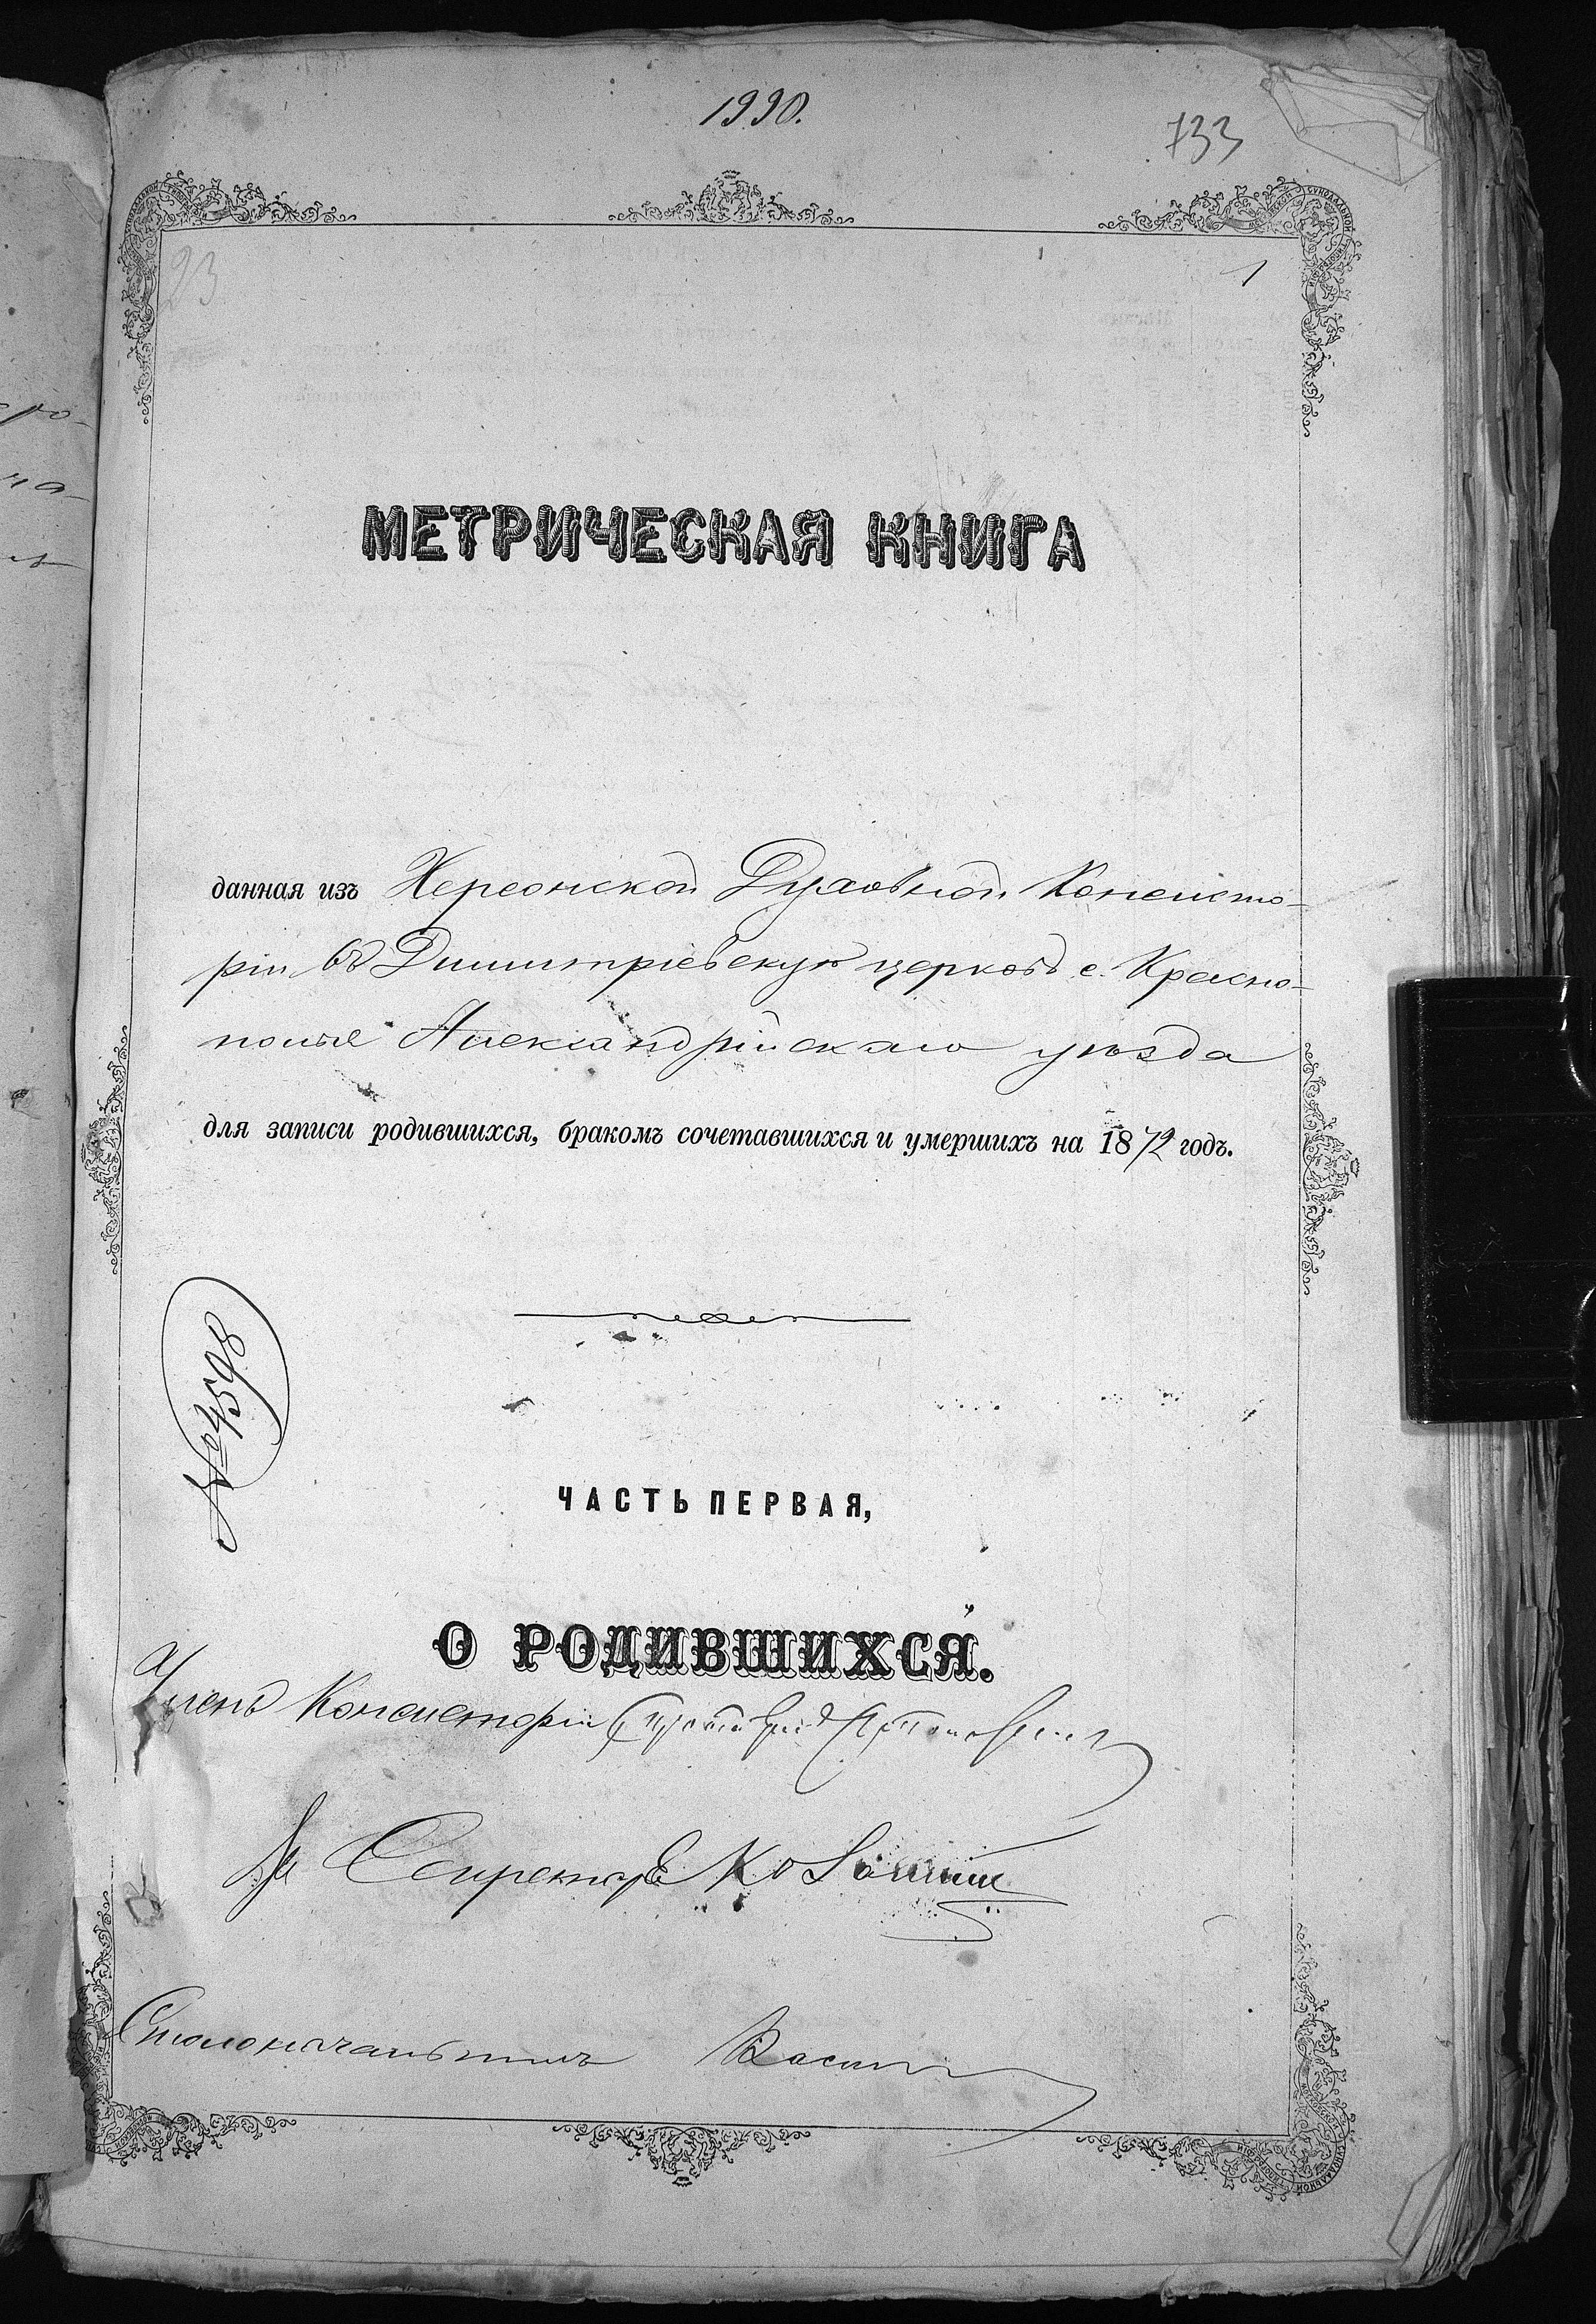 1990.
733
23
1
МЕТРИЧЕСКАЯ КНИГА
данная изъ Херсонской Духовной Консисто-
ріи въ Димитріевскую церковь с. Красно-
полья Александрійскаго уѣзда
для записи родившихся, бракомъ сочетавшихся и умершихъ на 1872 годъ.
№ 4598
ЧАСТЬ ПЕРВАЯ,
О РОДИВШИХСЯ.
Членъ Консисторіи
Секретарь
Столоначальникъ